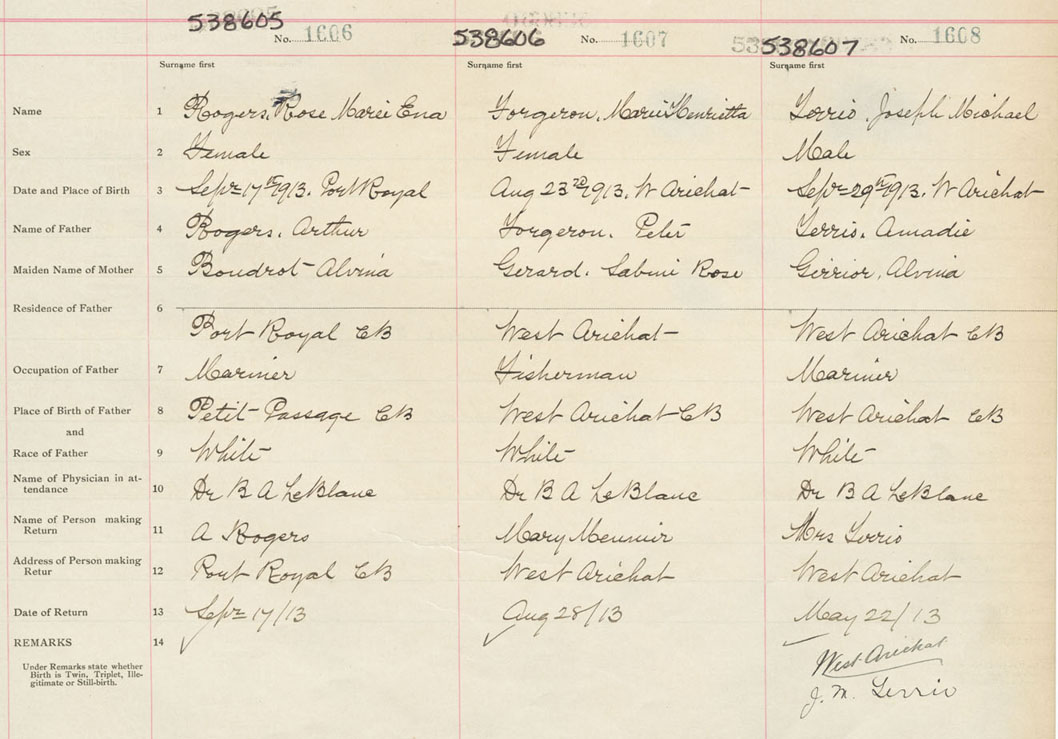 538605 No. 1606 538606 No. 1607 538607 No. 1608
Surname first Surname first Surname first
Name 1 Rogers, Rose Marie Ena Forgeron, Marie Henrietta Terrio Joseph Michael
Sex 2 Female Female Male
Date and Place of Birth 3 Sept 17th 1913. Port Royal Aug 23rd 1913. W Arichat Sept 29th 1913. W Arichat
Name of Father 4 Rogers, Arthur Forgeron. Peter Terrio. Amadie
Maiden Name of Mother 5 Boudrot Alvina Gerard. Sabini Rose Girrior, Alvina
Residence of Father 6
Port Royal CB West Arichat West Arichat CB
Occupation of Father 7 Mariner Fisherman Mariner
Place of Birth of Father 8 Petit Passage CB West Arichat CB West Arichat CB
and
Race of Father 9 White White White
Name of Physician in at-
tendance 10 Dr B A LeBlanc Dr B A LeBlanc Dr B A LeBlanc
Name of Person making
Return 11 A Rogers Mary Meunier Mrs Terrio
Address of Person making
Retur 12 Port Royal CB West Arichat West Arichat
Date of Return 13 Sept 17/13 Aug 28/13 May 22/13
REMARKS 14 West Arichat
Under Remarks state whether
Birth is Twin, Triplet, Ille-
gitimate or Still-birth.
J. M. Terrio